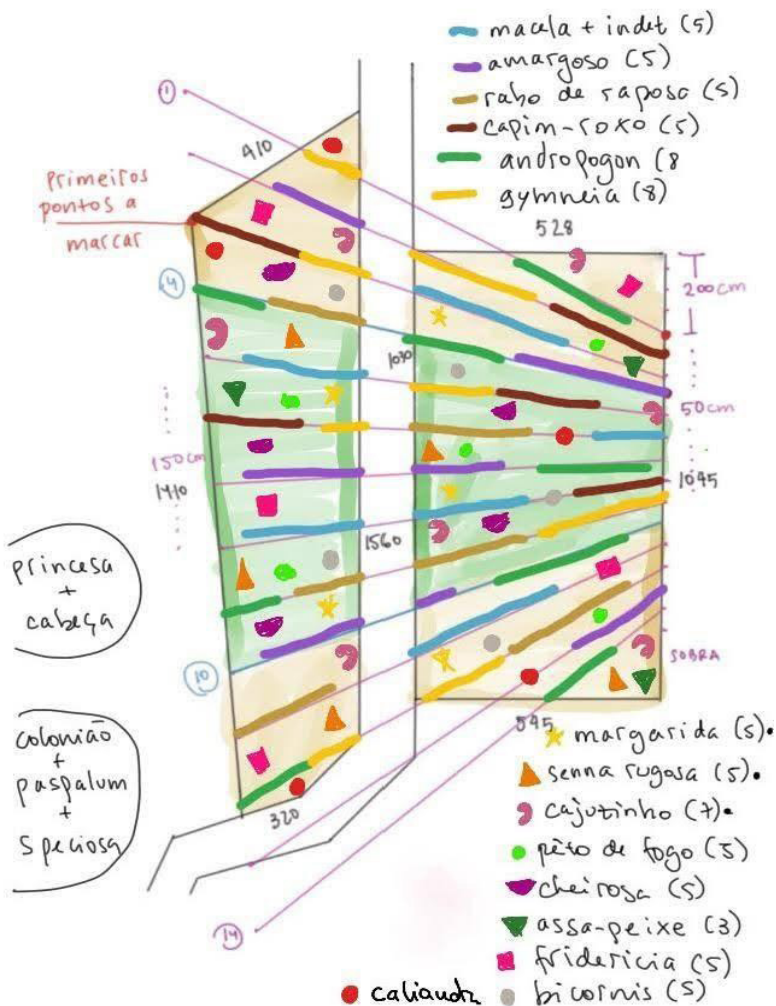 macela + indet (5)
amargoso (5)
rabo de raposa (5)
capim-roxo (5)
andropogon (8
gymneia (8)
1
410
primeiros
pontos a
marcar
528
200cm
4
1030
50cm
150cm
1410
1045
1560
princesa
+
cabeça
10
SOBRA
colonião
+
paspalum
+
speciosa
545
320
margarida (5).
senna rugosa (5).
cajuzinho (7).
pêlo de fogo (5)
cheirosa (5)
assa-peixe (3)
fridericia (5)
bicornis (5)
14
caliandra